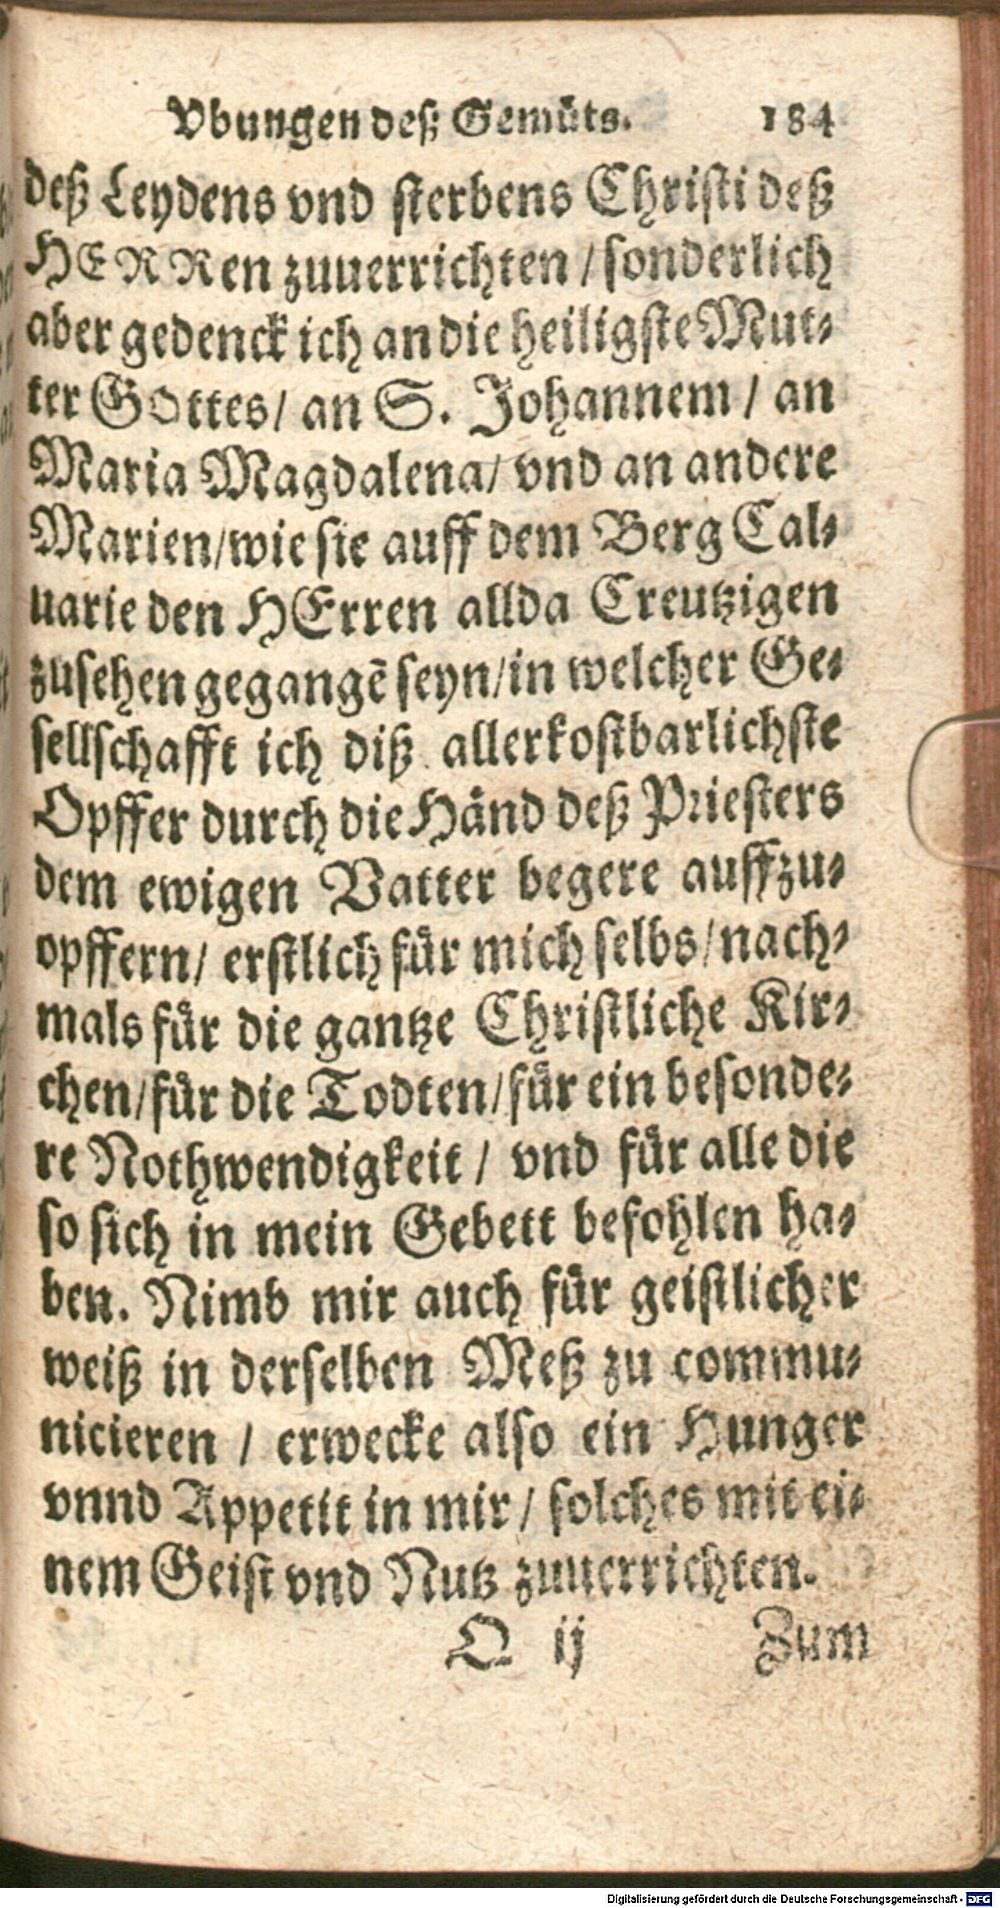 Vbungen deß Gemüts. 184
deß Leydens vnd sterbens Christi deß
HERRen zuuerrichten / sonderlich
aber gedenck ich an die heiligste Mut-
ter GOttes / an S. Johannem / an
Maria Magdalena / vnd an andere
Marien / wie sie auff dem Berg Cal-
uarie den HErren allda Creutzigen
zusehen gegangē seyn / in welcher Ge-
sellschafft ich diß allerkostbarlichste
Opffer durch die Händ deß Priesters
dem ewigen Vatter begere auffzu-
opffern / erstlich für mich selbs / nach-
mals für die gantze Christliche Kir-
chen / für die Todten / für ein besonde-
re Nothwendigkeit / vnd für alle die
so sich in mein Gebett befohlen ha-
ben. Nimb mir auch für geistlicher
weiß in derselben Meß zu commu-
nicieren / erwecke also ein Hunger
vnnd Appetit in mir / solches mit ei-
nem Geist vnd Nutz zuuerrichten.
Q ij Zum
Digitalisierung gefördert durch die Deutsche Forschungsgemeinschaft - DFG